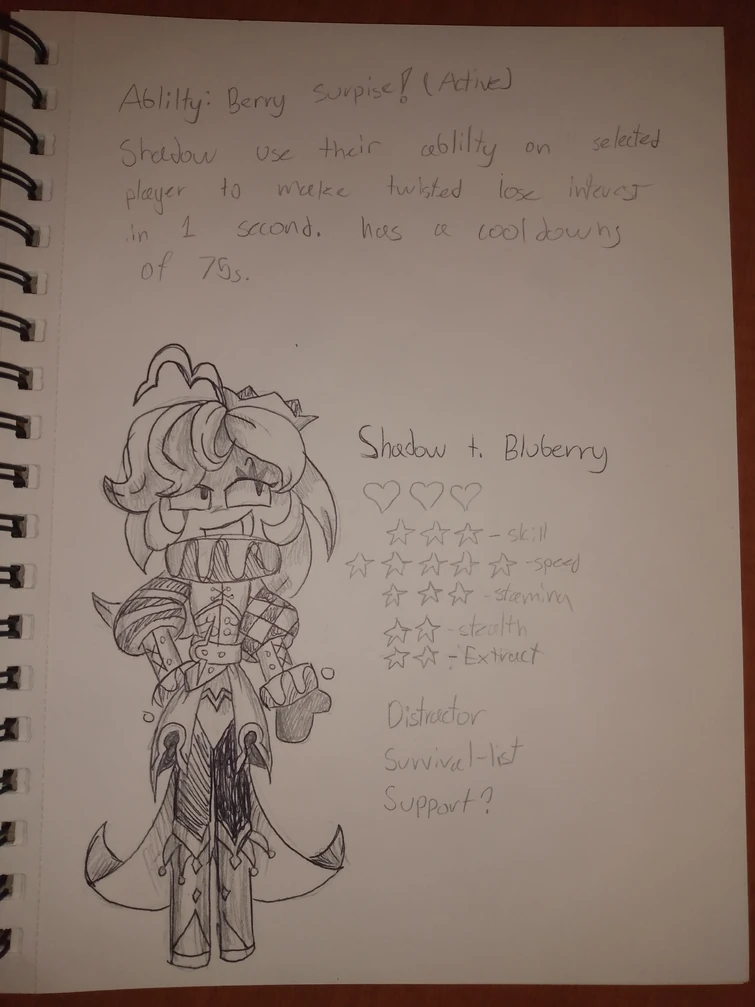 Ablilty: Berry surpise! (Active)
Shadow use their ablilty on selected
player to make twisted lose interest
in 1 second. has a cooldowns
of 75s.
Shadow t. Bluberry
- skill
- speed
- stamina
- stealth
- Extract
Distractor
Survival-list
Support?